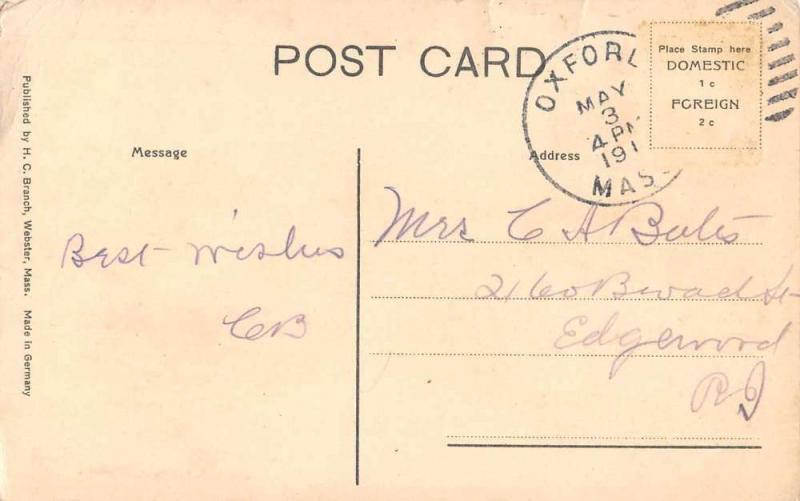 POST CARD
OXFOR
MAY
3
4 PM
191
MAS
Place Stamp here
DOMESTIC
1 c
FOREIGN
2 c
Published by H. C. Branch, Webster, Mass. Made in Germany
Message
Best Wishes
CB
Address
Mrs C A Bates
2160 Broad St
Edgewood
RI